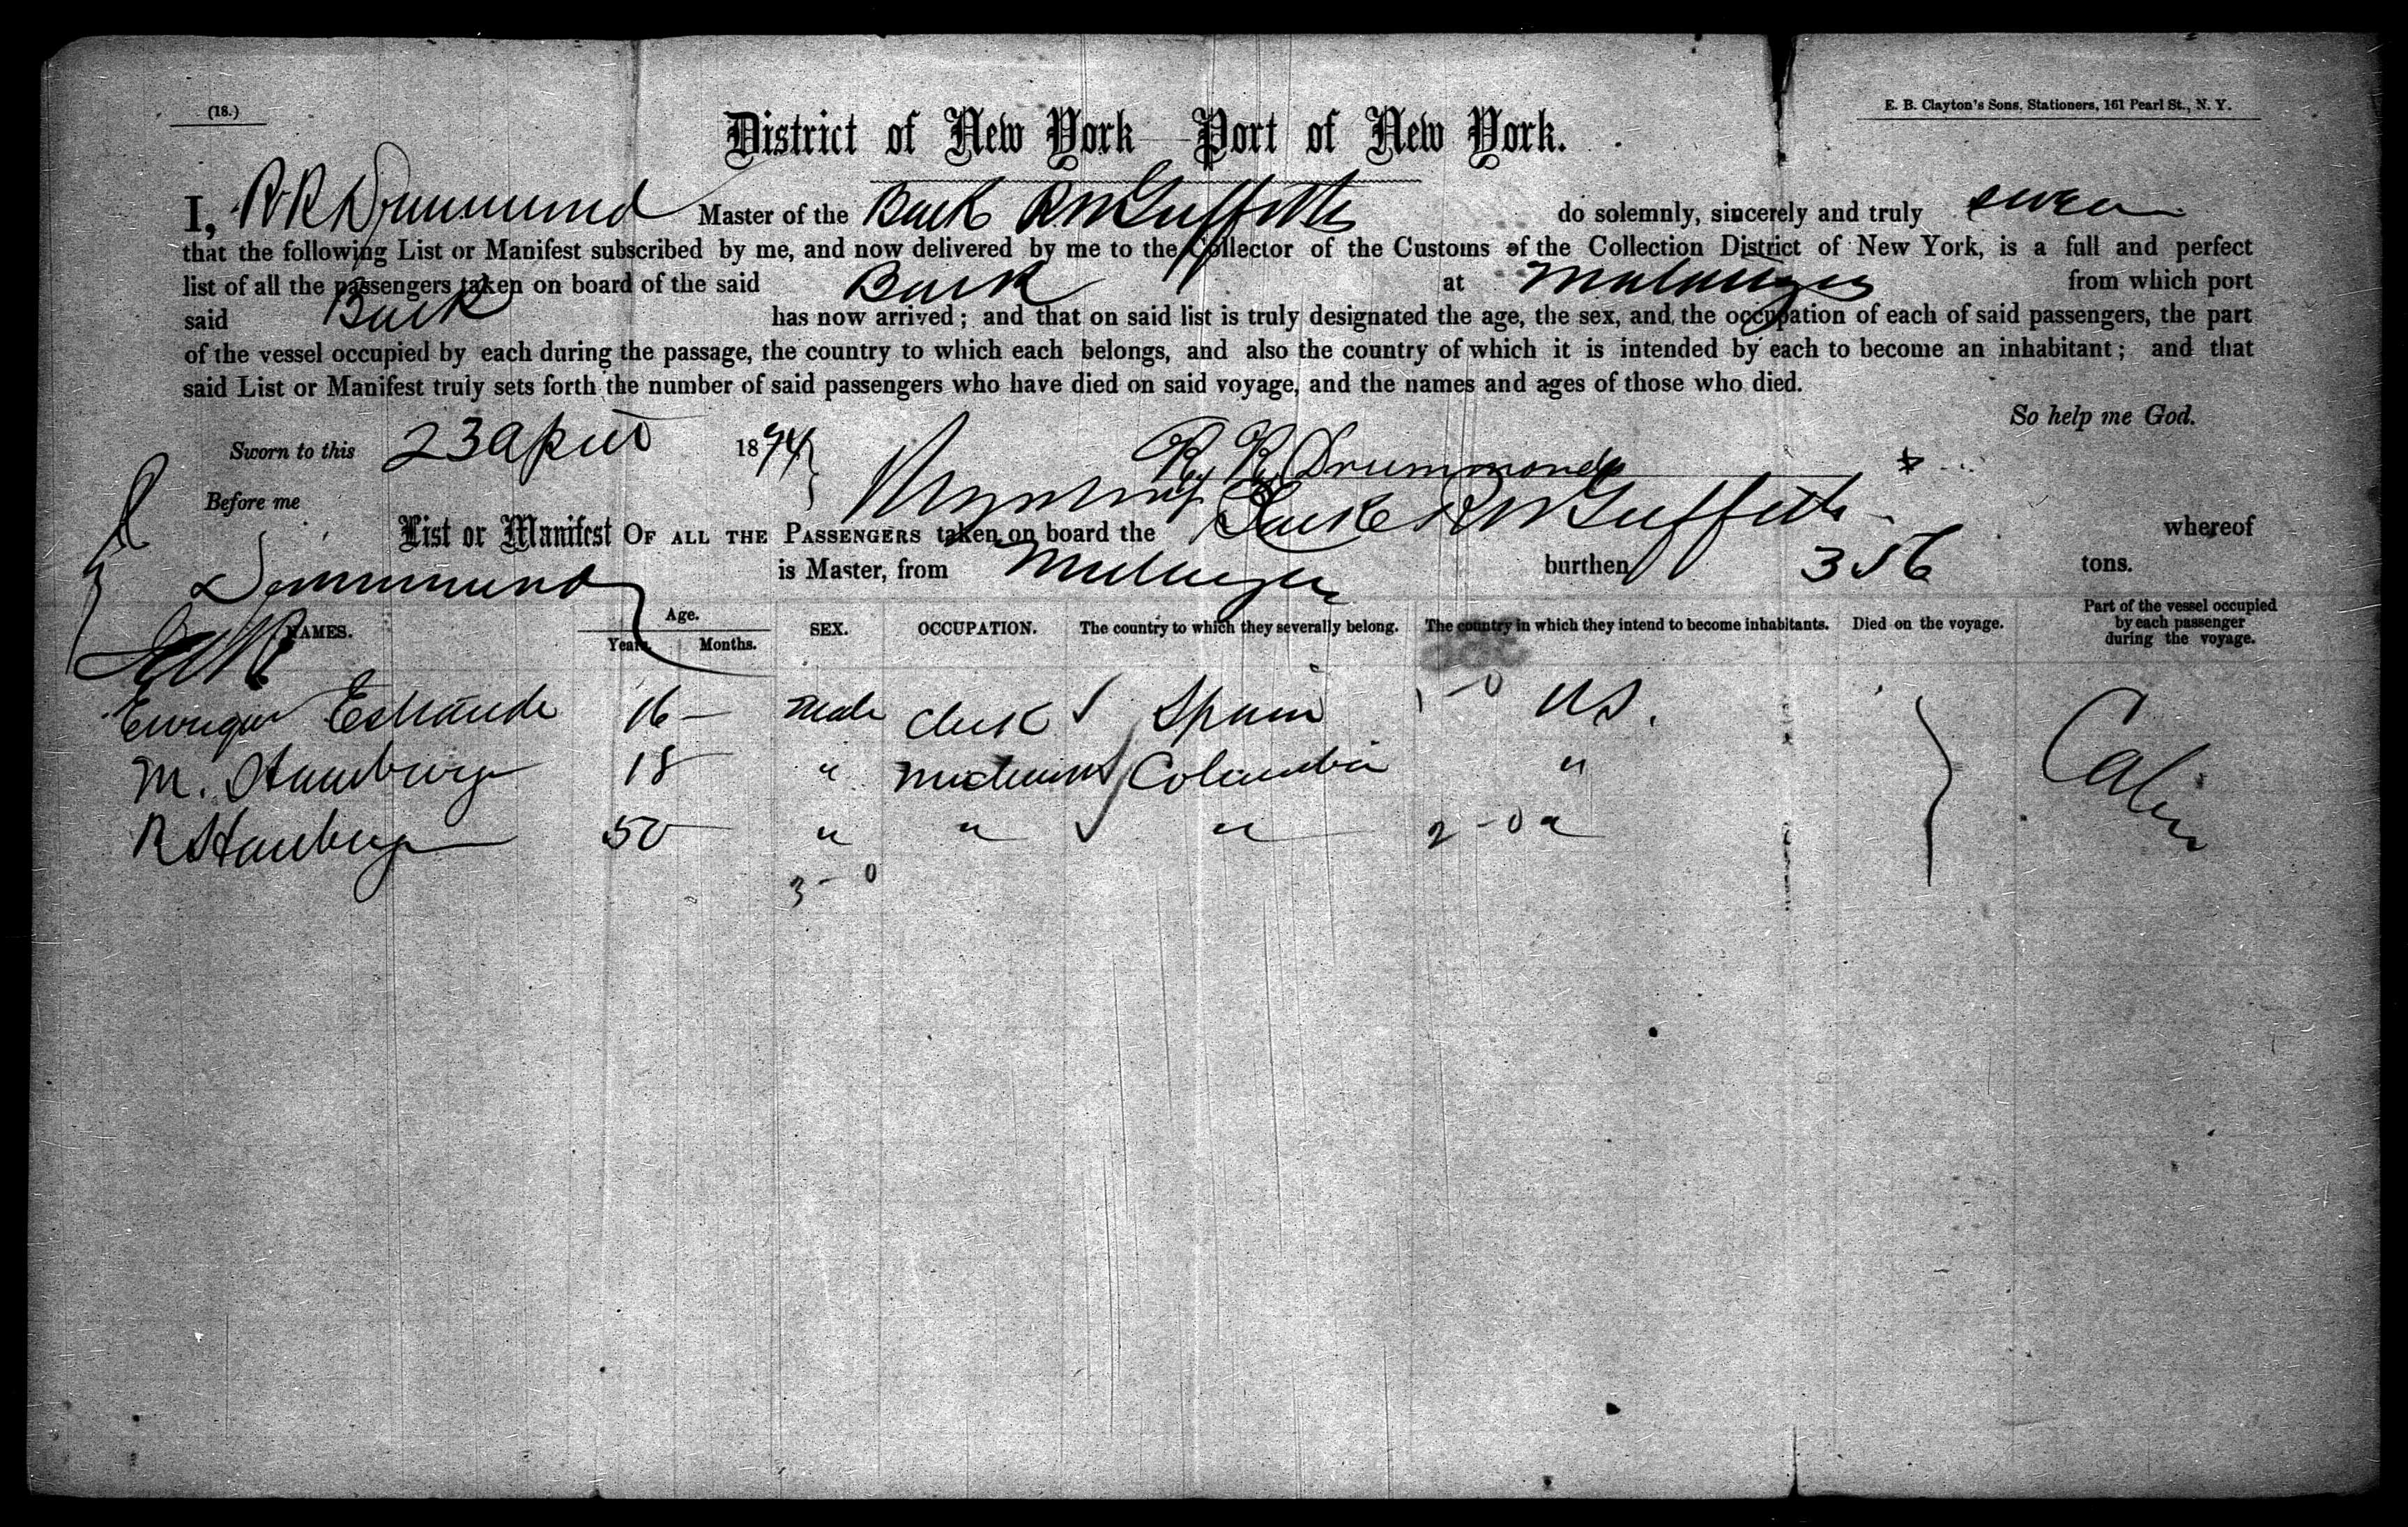 (18.)
E. B. Clayton's Sons, Stationers, 161 Pearl St., N. Y.
District of New York Port of New York.
I, R R Drummond Master of the Bark R W Griffith do solemnly, sincerely and truly swear
that the following List or Manifest subscribed by me, and now delivered by me to the Collector of the Customs of the Collection District of New York, is a full and perfect
list of all the passengers taken on board of the said Bark at from which port
said Bark has now arrived; and that on said list is truly designated the age, the sex, and the occupation of each of said passengers, the part
of the vessel occupied by each during the passage, the country to which each belongs, and also the country of which it is intended by each to become an inhabitant; and that
said List or Manifest truly sets forth the number of said passengers who have died on said voyage, and the names and ages of those who died.
So help me God.
Sworn to this 23 April 1874
R. R. Drummond
Before me
List or Manifest OF ALL THE PASSENGERS taken on board the Bark R W Griffith whereof
Drummond is Master, from burthen 356 tons.
NAMES. Age. Years. Months. SEX. OCCUPATION. The country to which they severally belong. The country in which they intend to become inhabitants. Died on the voyage. Part of the vessel occupied by each passenger during the voyage.
16 male Clerk Spain 1-0 U S. Cabin
M. 18 " Columbia "
R 50 " " " 2-0 "
3-0